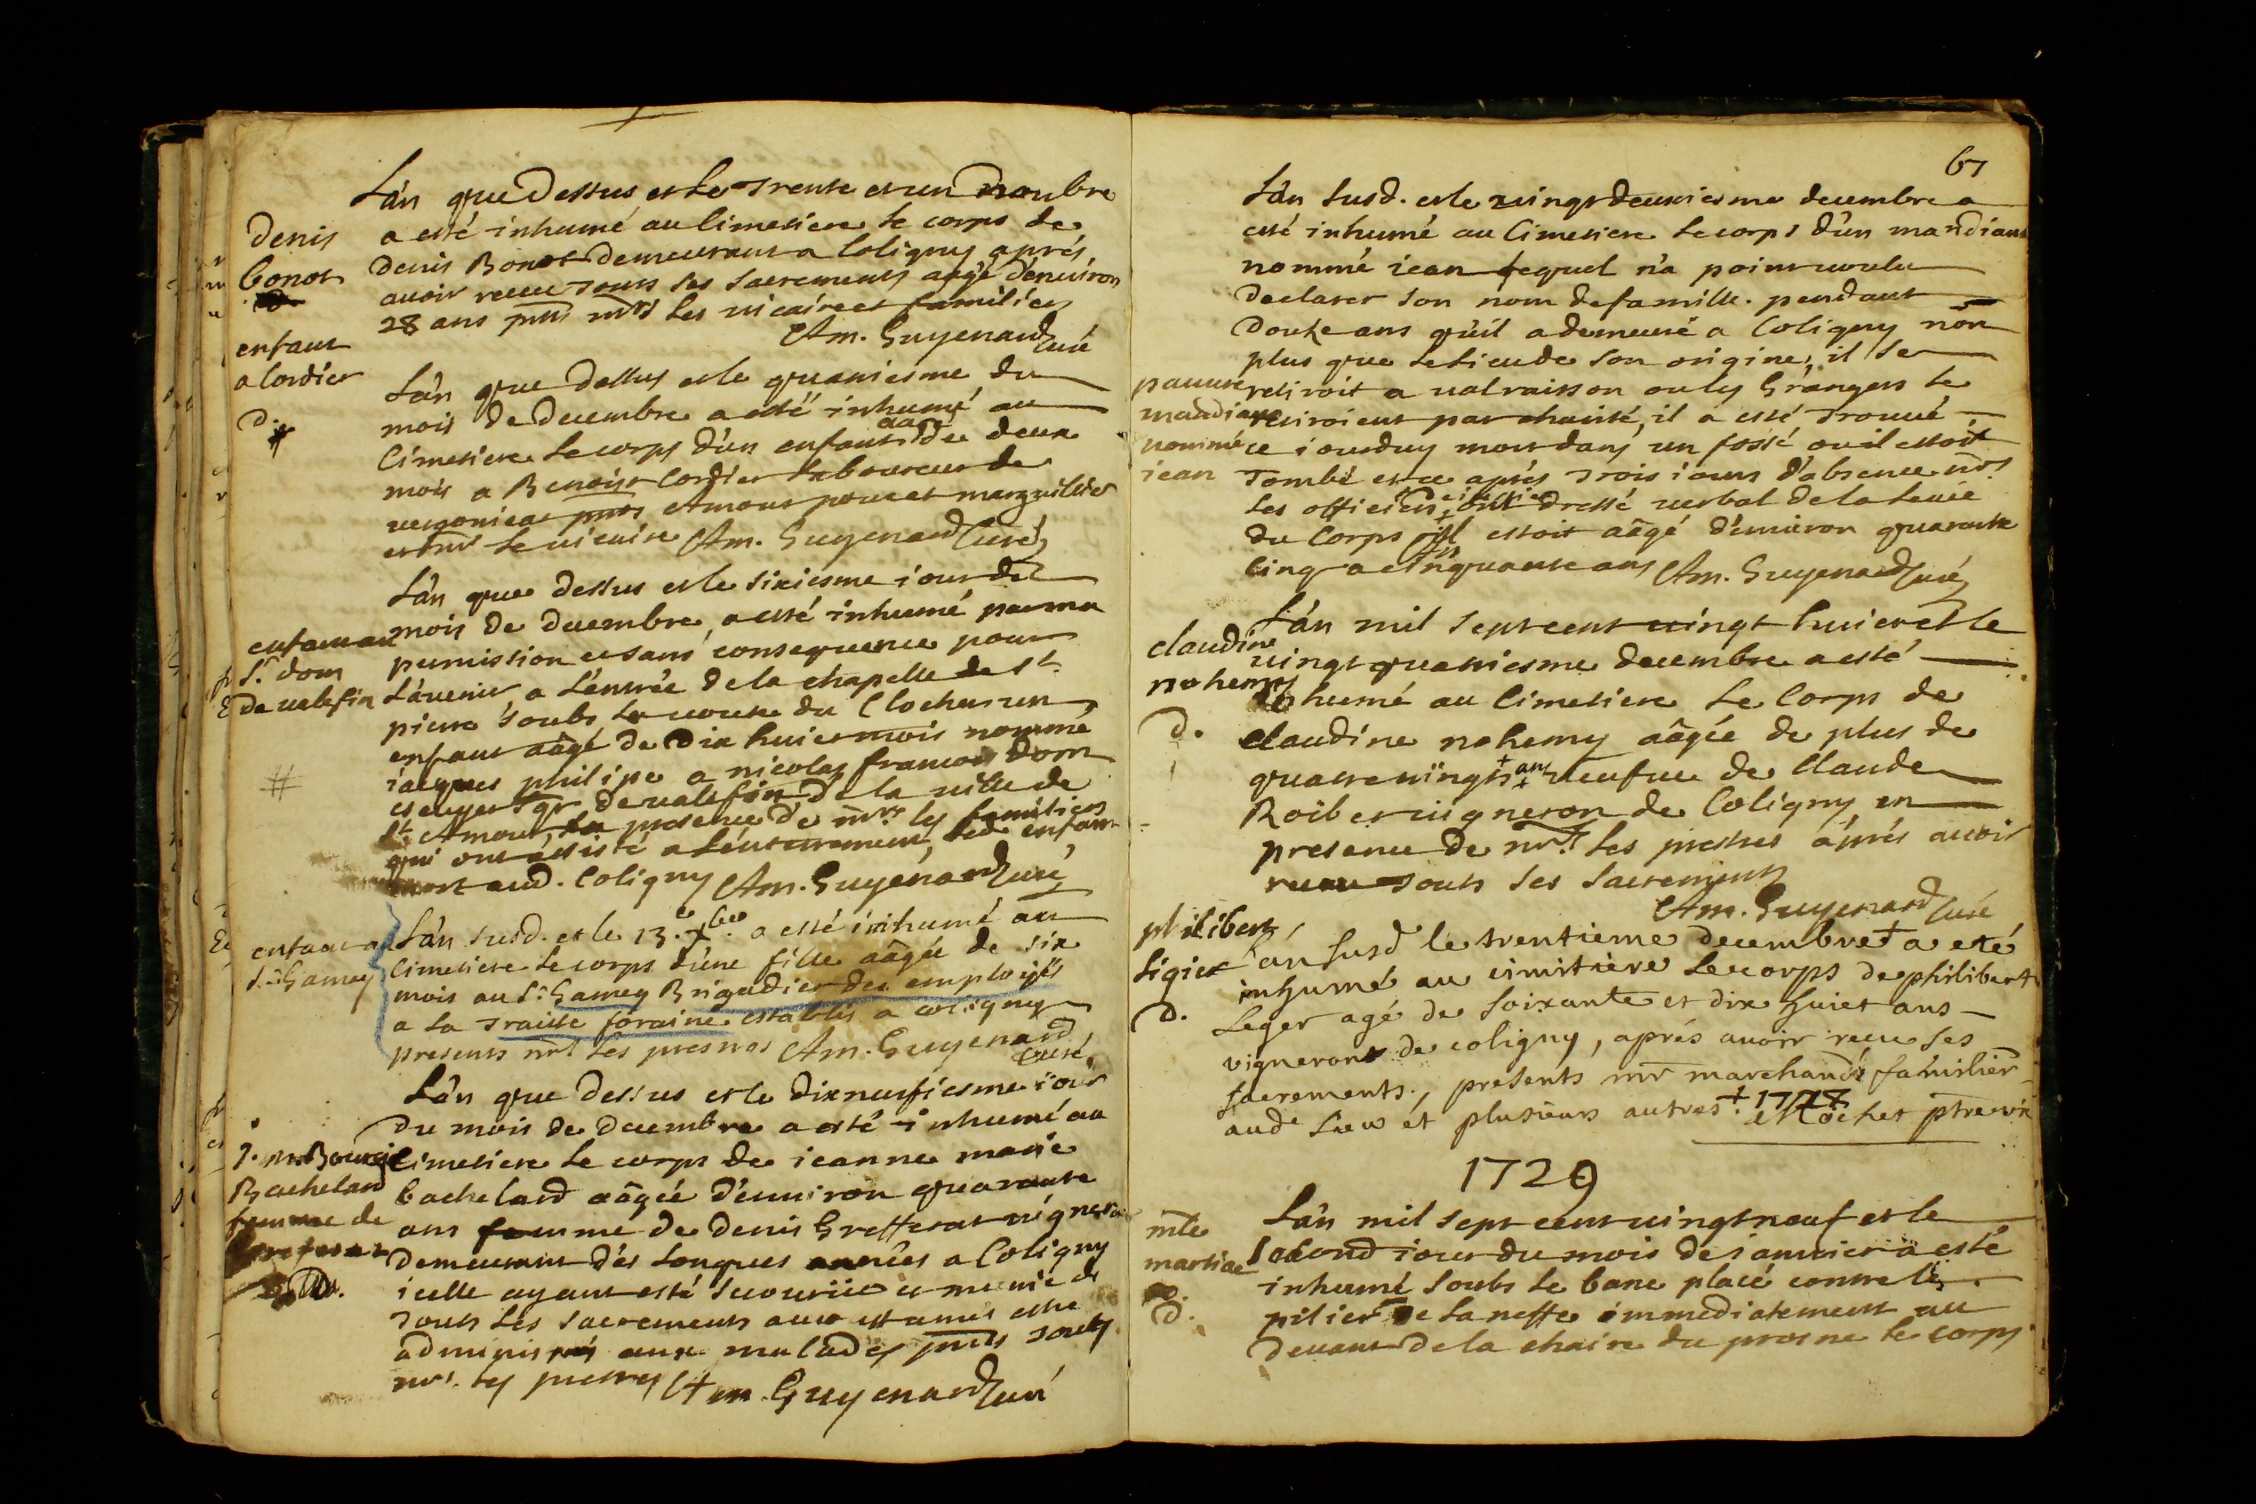 L'an que Dessus et le trente et un
a esté inhumé au Cimetiere le corps de
denis
bonot
denis Bonot demeurant a Coligny aprés
avoir receu touts ses sacrements aagé d'environ
28 ans pnts mrs les vicaire et familiers
Am. Guyenard Curé
enfant
a Cordier
d.
L'an que dessus et le quatriesme du
mois de decembre a esté inhumé au
Cimetiere le corps d'un enfant aagé de deux
mois a Benoist Cordier laboureur de
pnts Amour poncet marguillier
et mr le vicaire Am. Guyenard Curé
L'an que dessus et le sixiesme iour du
enfant au
Sr. dom
de valefin
mois de decembre, a esté inhumé par ma
permission et sans consequence pour
L'avenir a L'entrée de la chapelle de St.
pierre soubs la voute du Clocher un
enfant aâgé de Dix huict mois nommé
iacques philipe a nicolas francois Dom
escuyer sgr de valefin de la ville de
St. Amour, en presence de mrs les familiers
qui ont assisté a L'enterrement dud. enfant
mort aud. Coligny Am. Guyenard Curé
enfant au
Sr. Gamey
L'an susd. et le 13. xbre. a esté inhumé au
Cimetiere le corps d'une fille aâgée de six
mois au Sr. Gamey Brigadier des employés
a la traitte foraine establis a coligny
presents mrs les prestres Am. Guyenard
Curé
L'an que dessus et le dixneufiesme iour
du mois de decembre a esté inhumé au
J. m. Bourgie
Bachelard
femme de
cimetiere le corps de ieanne marie
bachelard aâgée d'environ quarante
ans femme de Denis Grefferat vigneron
demeurant dès longues années a Coligny
icelle ayant esté secouriie et munie de
touts les sacrements
administrés aux malades pnts touts
mrs. les prestres Am. Guyenard Curé
67
L'an susd. et le vingt deuxiesme decembre a
esté inhumé au Cimetiere le corps d'un mandiant
nommé iean lequel n'a point voulu
declarer son nom de famille. pendant
douze ans qu'il a demeuré a Coligny non
plus que le lieu de son origine, il se
pauvre
mandiant
nommé
iean
retiroit a valraisson ou les Grangers le
retiroient par charité, il a esté trouvé
ce iourduy mort dans un fossé ou il estoit
tombé et ce aprés trois iours d'absence mrs
les officiers ont dressé verbal de la levée
du Corps il estoit aâgé d'environ quarante
cinq a cinquante ans Am. Guyenard Curé
claudine
nohemy
d.
L'an mil sept cent vingt huict et le
vingt quatriesme decembre a esté
inhumé au Cimetiere le Corps de
claudine nohemy aâgée de plus de
quatre vingts ans veufve de Claude
Roibet vigneron de Coligny en
presence de mrs. les prestres aprés avoir
receu touts ses sacrements
Am. Guyenard Curé
philibert
Ligier
d.
L'an susd le trentieme decembre + a eté
inhumé au cimitiere le corps de philibert
Leger agé de soixante et dix huict ans
vigneron de coligny, aprés avoir receu ses
sacrements, presents mr marchand familier
aud. Lieu et plusieurs autres. + 1728
Rochet ptre vic
1729
mte
martine
d.
L'an mil sept cent vingt neuf et le
second iour du mois de ianvier a esté
inhumé soubs le banc placé contre le
pilier de la neffe immediatement au
devant de la chaire du prosne le corps